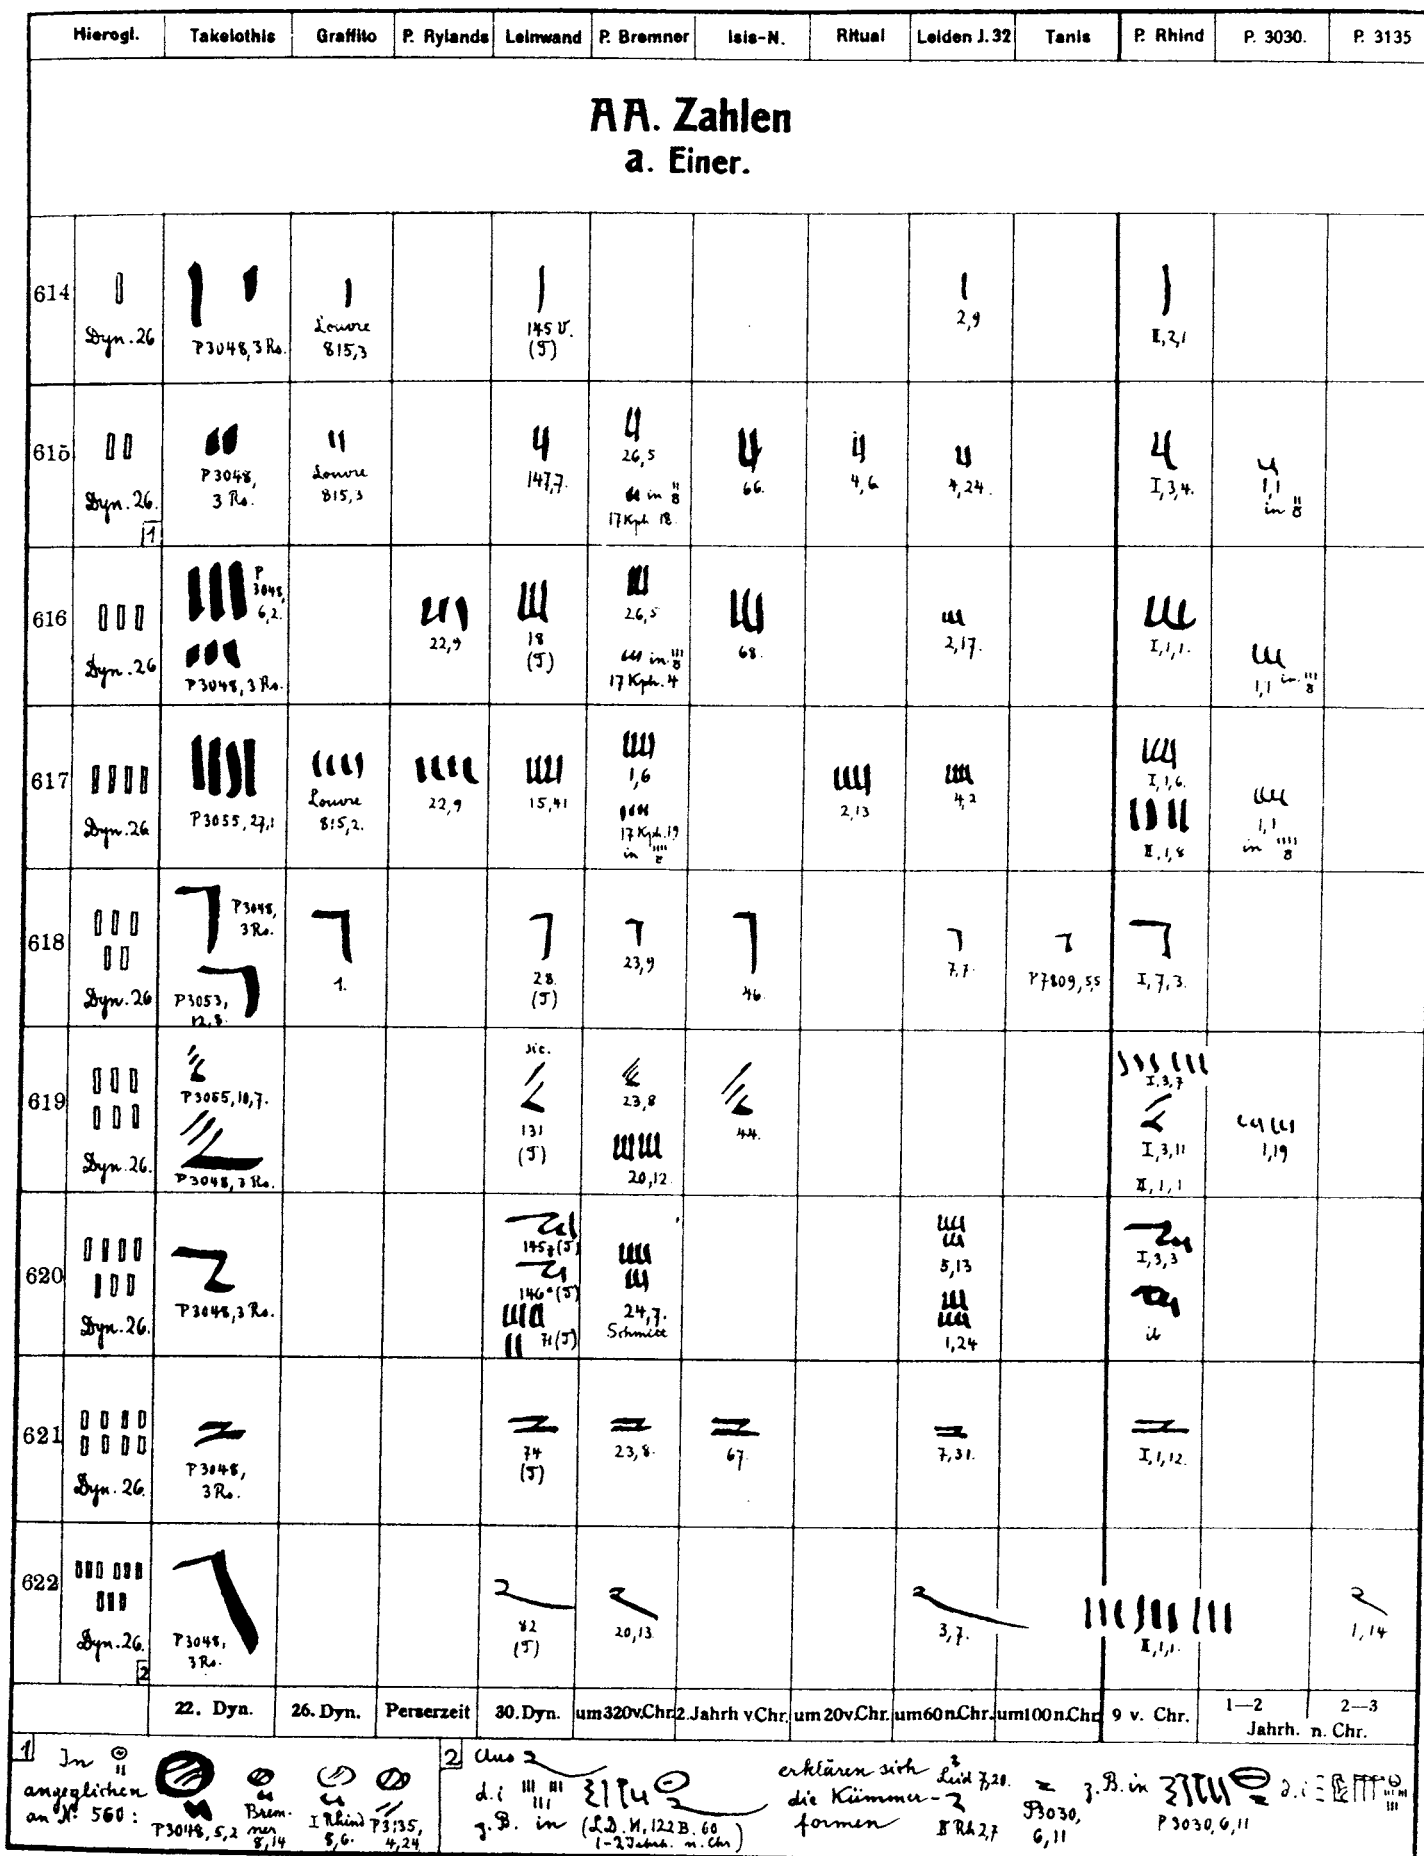 Hierogl. Takelothis Graffito P. Rylands Leinwand P. Bremner Isis-N. Ritual Leiden J.32 Tanis P. Rhind P. 3030. P. 3135
AA. Zahlen
a. Einer.
614
Dyn. 26
P3048, 3 Ro.
Louvre
815,3
145 V.
(J)
2,9
II,2,1
615
Dyn. 26.
1
P3048,
3 Ro.
Louvre
815,3
147,7.
26,5
in
17 Kph 18.
66.
4,6
4,24.
I,3,4.
1,1
in
616
Dyn. 26
P
3048,
6,2.
P3048, 3 Ro.
22,9
18
(J)
26,5
in
17 Kph. 4
68.
2,17.
I,1,1.
1,1 in
617
Dyn. 26
P3055, 27,1
Louvre
815,2.
22,9
15,41
1,6
17 Kph. 19
in
2,13
4,2
I,1,6.
II,1,8
1,1
in
618
Dyn. 26
P3048,
3 Ro.
P3053,
12,8.
1.
28.
(J)
23,9
46.
7,7.
P7809, 5,5
I,7,3.
619
Dyn. 26.
P3055, 10,7.
P3048, 3 Ro.
sic.
131
(J)
23,8
20,12.
44.
I,3,7
I,3,11
II,1,1
1,19
620
Dyn. 26.
P3048, 3 Ro.
(J)
146 (J)
71 (J)
24,7.
5,13
1,24
I,3,3
ib
621
Dyn. 26.
P3048,
3 Ro.
74
(J)
23,8.
67.
7,31.
I,1,12.
622
Dyn. 26.
2
P3048,
3 Ro.
82
(J)
20,13.
3,7.
II,1,1.
1,14
22. Dyn. 26. Dyn. Perserzeit 30. Dyn. um 320 v. Chr. 2. Jahrh v. Chr. um 20 v. Chr. um 60 n. Chr. um 100 n. Chr. 9 v. Chr. 1—2 2—3
Jahrh. n. Chr.
1 In
angeglichen
an Nº 560:
P3048, 5,2
Brem-
ner
8,14
I Rhind
8,6.
P3135,
4,24
2 Aus
d. i
z. B. in (L.D. VI, 122 B. 60
1-2 Jahrh. n. Chr)
erklären sich
die Kümmer-
formen
Leid 7,20.
II Rh 2,7
P3030,
6,11
z. B. in
P3030, 6,11
d. i